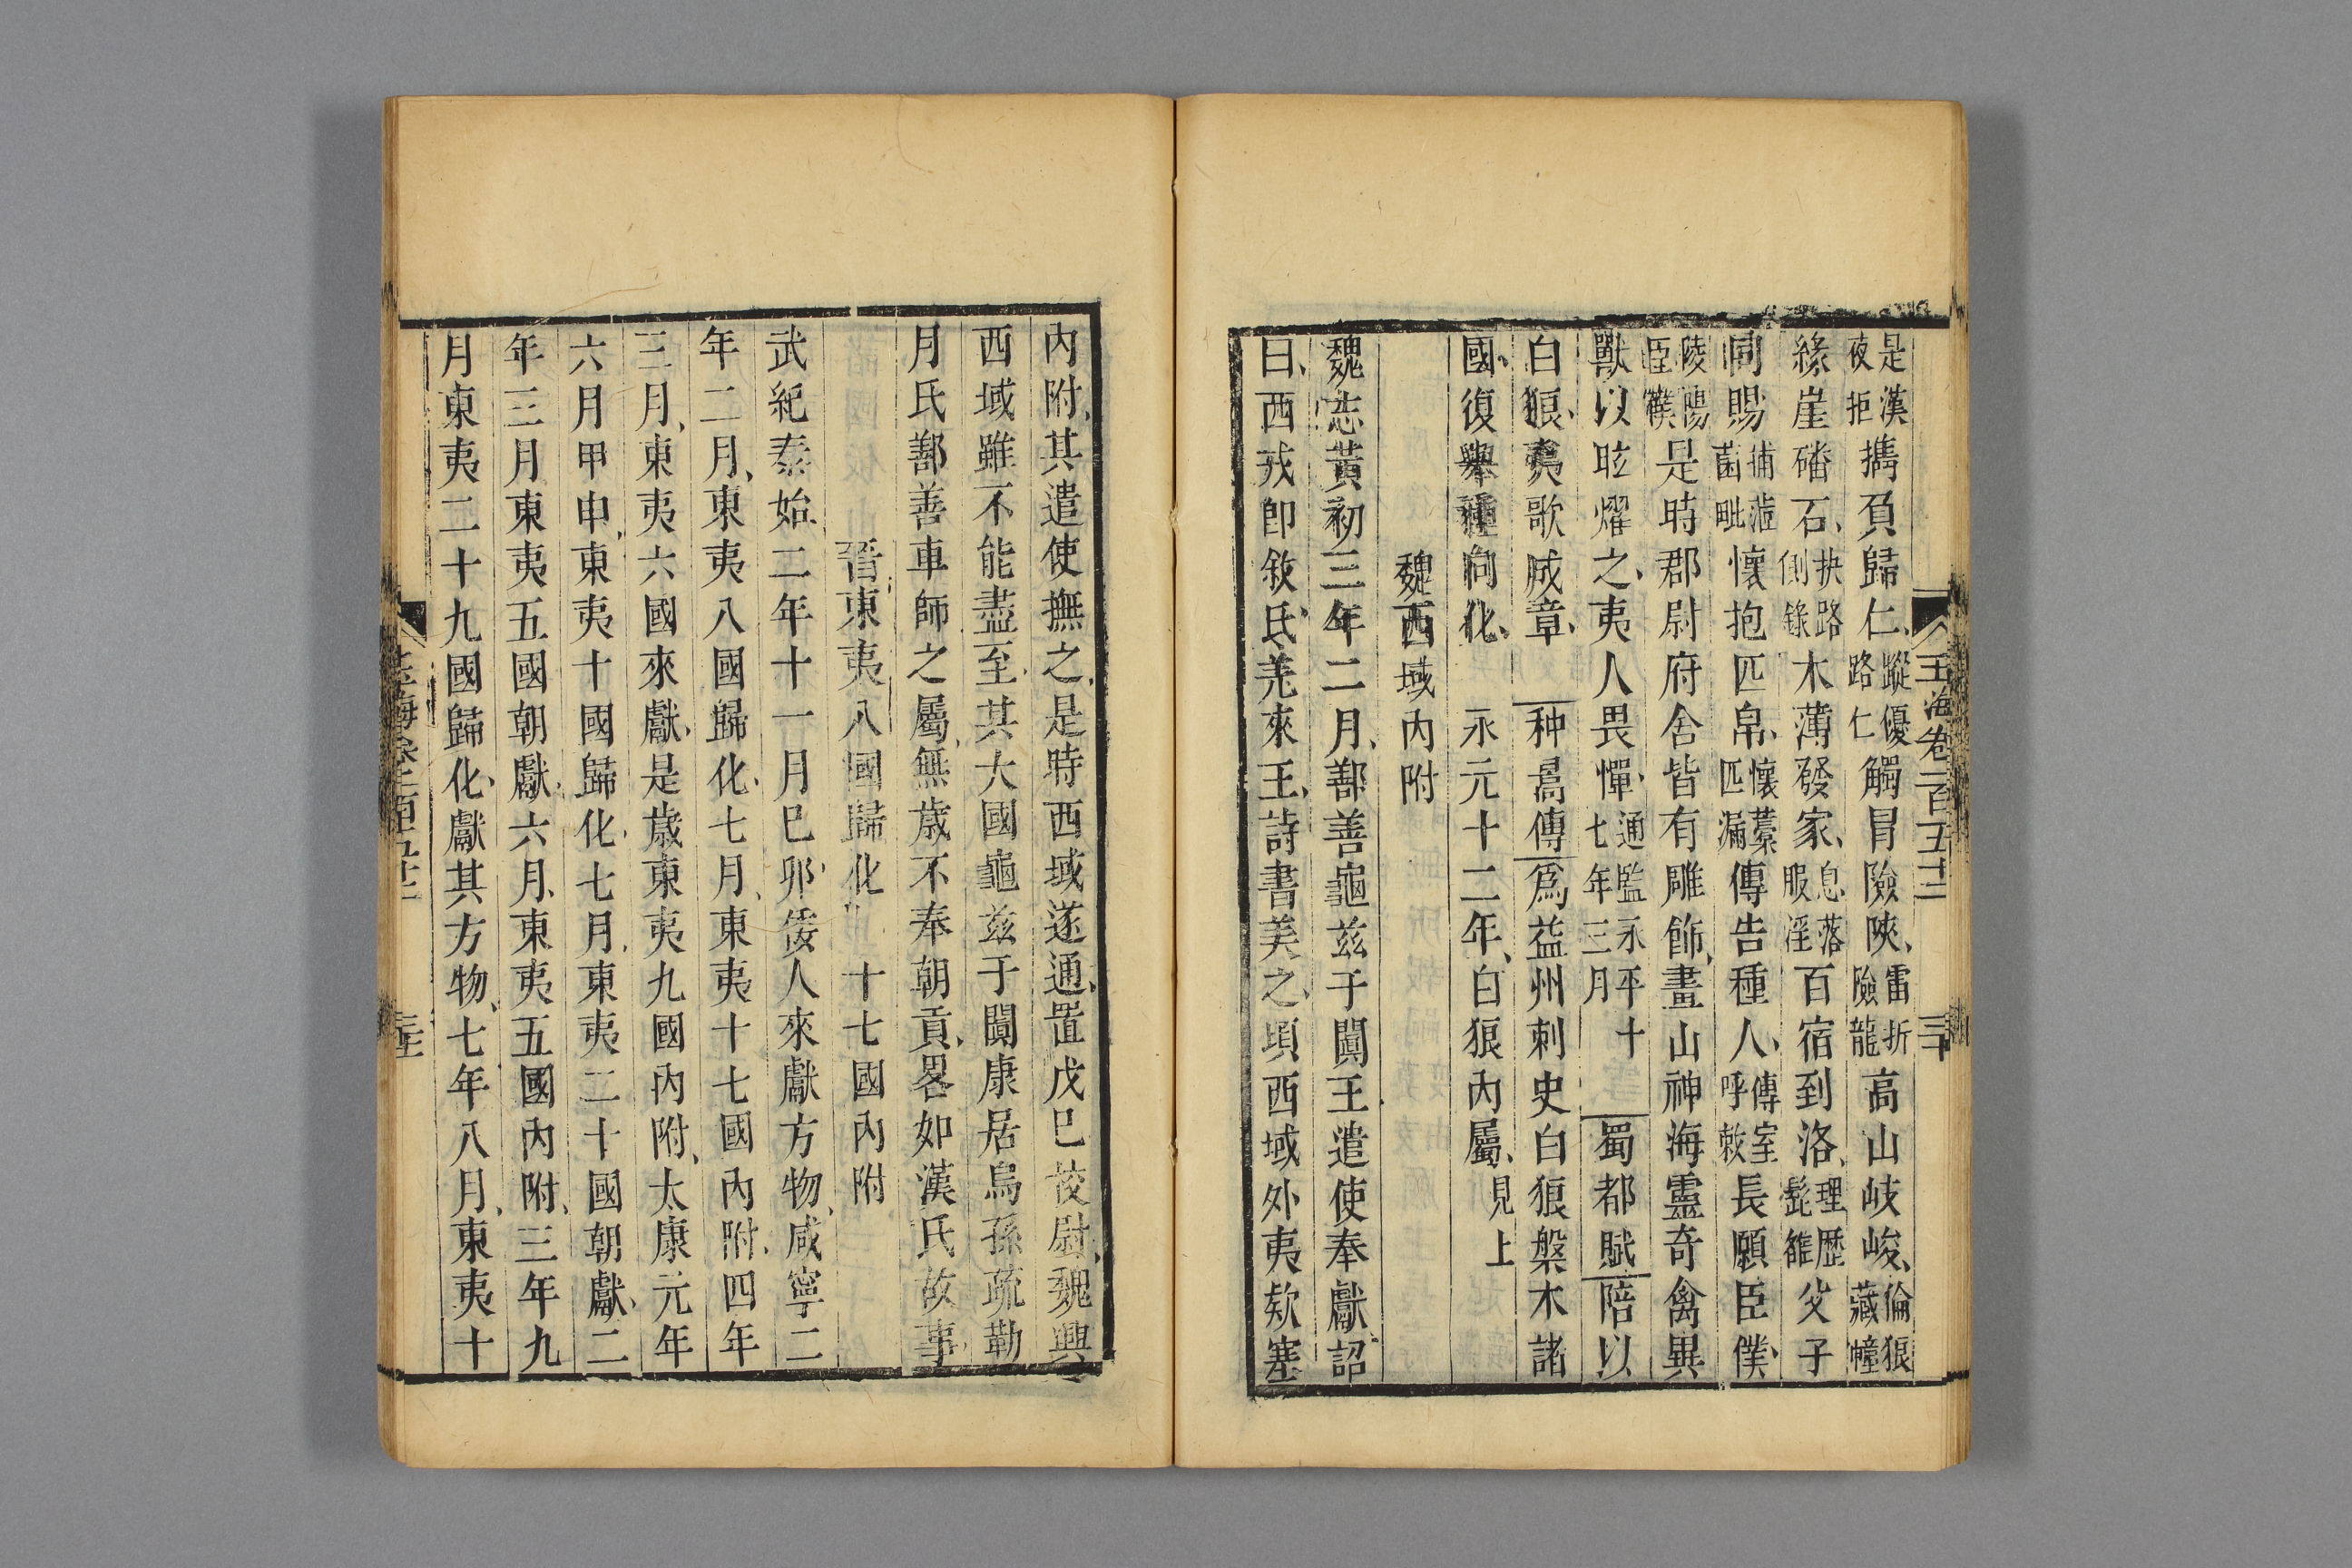 是漢夜拒攜負歸仁蹤優路仁觸冒險陝雷折險龍高山岐峻倫狼藏幢
緣崖磻石扶路側祿木薄發家息落服淫百宿到洛理歷髭雒父子
同賜捕茝菌毗懷抱匹帛懷藁匹漏傳告種人傳室呼敕長願臣僕
陵陽臣僕是時郡尉府舍皆有雕飾畫山神海靈奇禽異
獸以眩燿之夷人畏憚通監永平十七年三月蜀都賦陪以
白狼夷歌成章种暠傳爲益州刺史白狼槃木諸
國復舉種向化永元十二年白狼內屬見上
魏西域內附
魏志黃初三年二月鄯善龜茲于闐王遣使奉獻詔
曰西戎卽敘氐羌來王詩書美之頃西域外夷欵塞
玉海卷一百五十二
三十
內附其遣使撫之是時西域遂通置戊巳校尉魏興
西域雖不能盡至其大國龜茲于闐康居烏孫疏勒
月氏鄯善車師之屬無歲不奉朝貢畧如漢氏故事
晉東夷八國歸化 十七國內附
武紀泰始二年十一月巳卯倭人來獻方物咸寧二
年二月東夷八國歸化七月東夷十七國內附四年
三月東夷六國來獻是歲東夷九國內附太康元年
六月甲申東夷十國歸化七月東夷二十國朝獻二
年三月東夷五國朝獻六月東夷五國內附三年九
月東夷二十九國歸化獻其方物七年八月東夷十